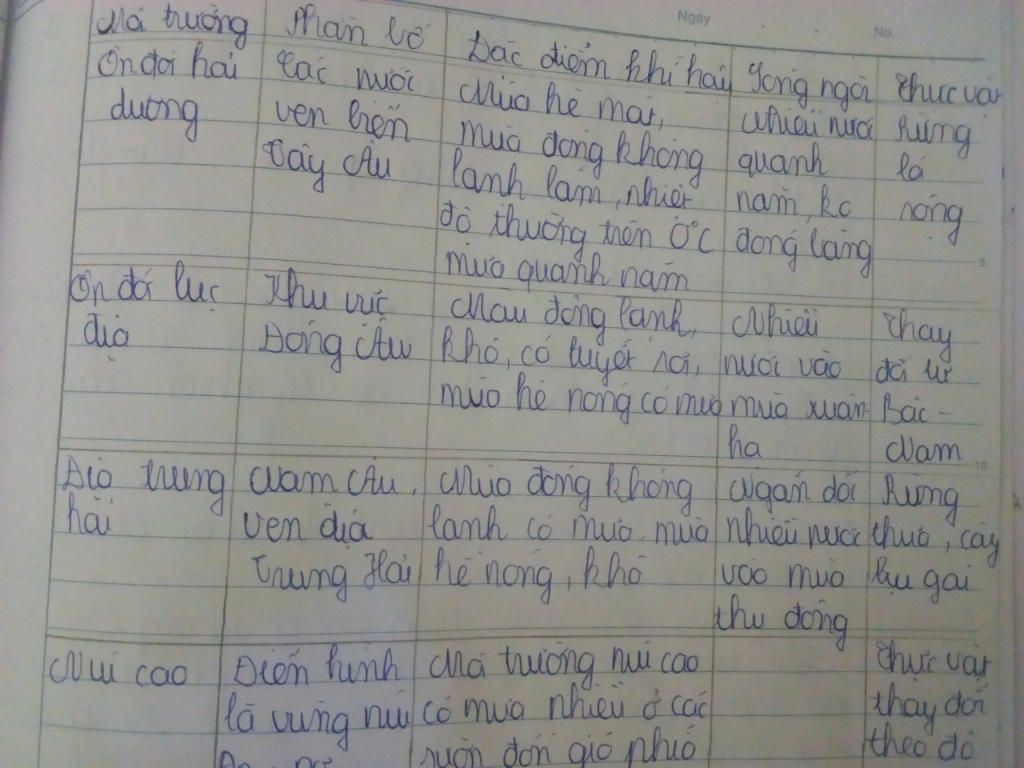 Ngày No.
Môi trường Phân bố Đặc điểm khí hậu Sông ngòi Thực vật
Ôn đới hải Các nước Mùa hè mát, Nhiều nước Rừng
dương ven biển mùa đông không quanh lá
Tây Âu lạnh lắm, nhiệt năm, ko rộng
độ thường trên 0°C đóng băng
mưa quanh năm
Ôn đới lục Khu vực Mùa đông lạnh, Nhiều Thay
địa Đông Âu khô, có tuyết rơi, nước vào đổi từ
mùa hè nóng có mưa mùa xuân Bắc -
hạ Nam
Địa trung Nam Âu, Mùa đông không Ngắn dốc Rừng
hải ven địa lạnh có mưa, mùa nhiều nước thưa, cây
Trung Hải hè nóng, khô vào mùa bụi gai
thu đông
Núi cao Điển hình Môi trường núi cao Thực vật
là vùng núi có mưa nhiều ở các thay đổi
sườn đón gió phía theo độ